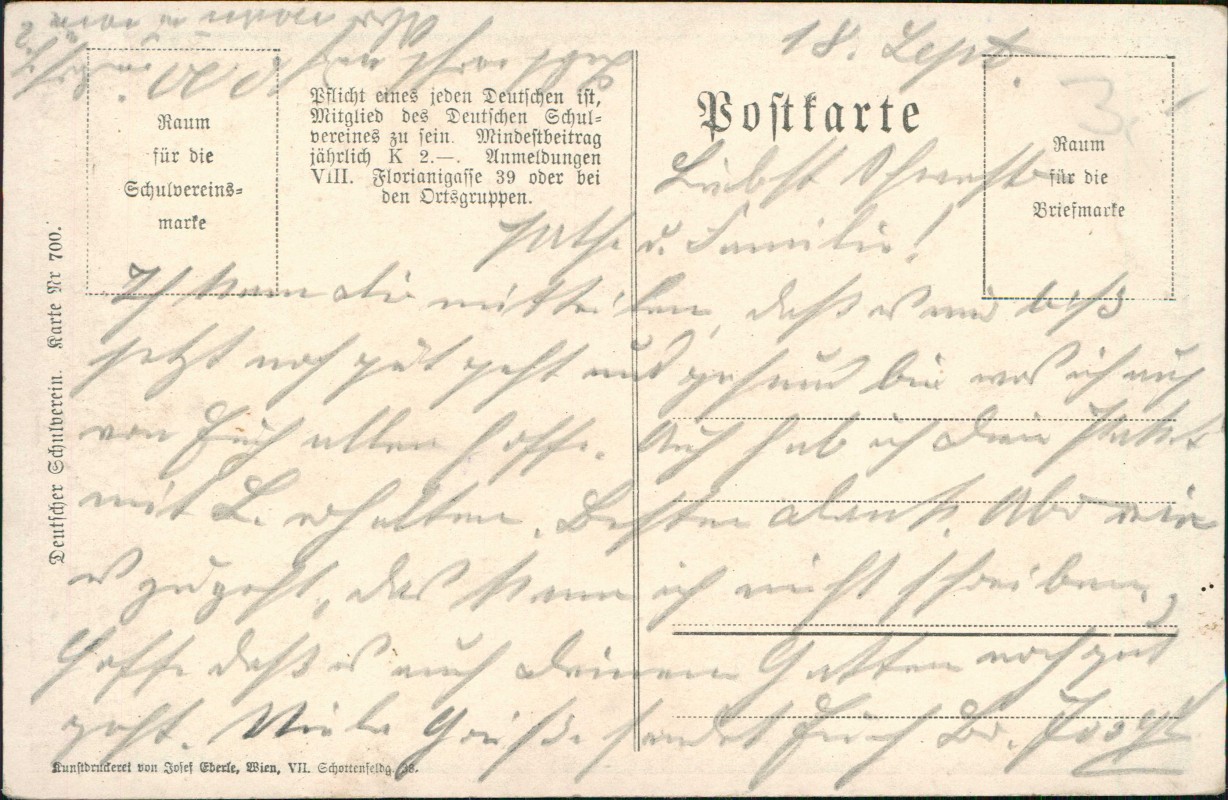 18. Sept.
Raum
für die
Schulvereins=
marke
Pflicht eines jeden Deutschen ist,
Mitglied des Deutschen Schul=
vereines zu sein. Mindestbeitrag
jährlich K 2.—. Anmeldungen
VIII. Florianigasse 39 oder bei
den Ortsgruppen.
Postkarte
3.
Raum
für die
Briefmarke
Deutscher Schulverein. Karte Nr 700.
Liebst Schwester
u. Familie!
Ich kann dir mitteilen, daß es mir biß
jetzt noch gut geht und gesund bin was ich auch
von Euch allen hoffe. Auch hab ich dein Paket
mit L. erhalten. Besten dank. Aber wie
es zugeht, das kann ich nicht schreiben,
hoffe daß es auch deinem Gatten noch gut
geht. Viele Grüße sendet Euch Br. Josef
Kunstdruckerei von Josef Eberle, Wien, VII. Schottenfeldg. 38.